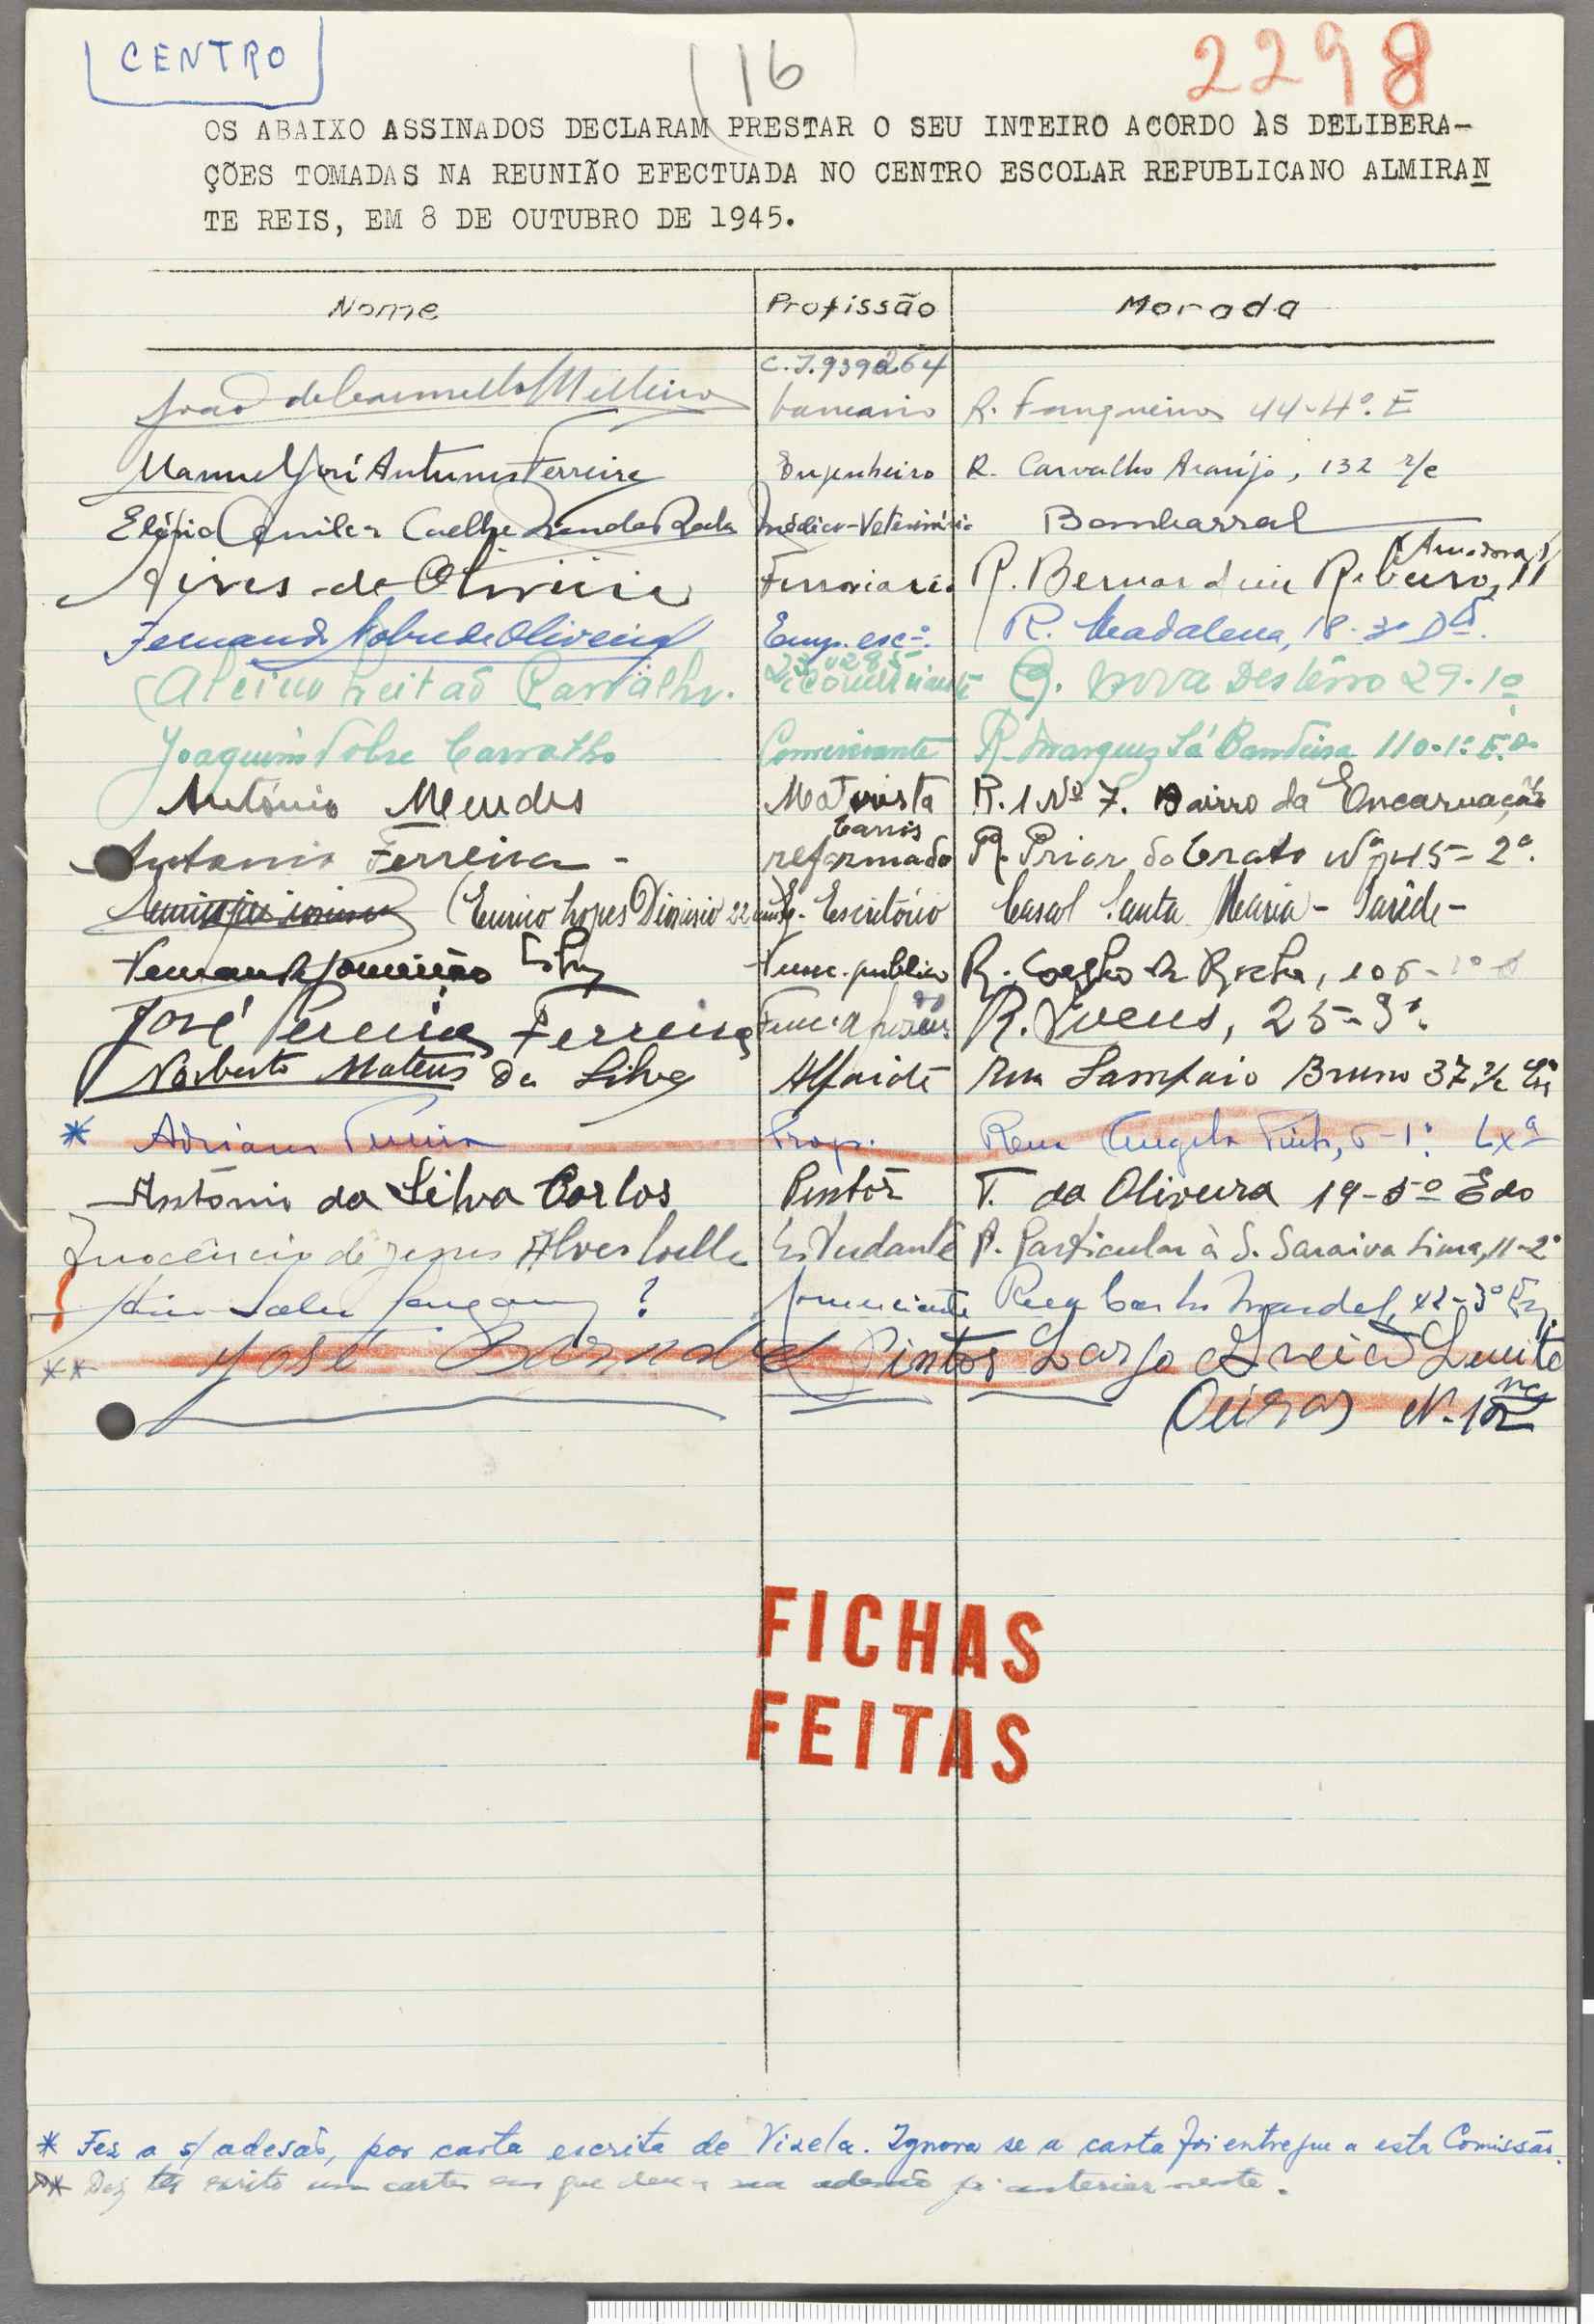 CENTRO
16
2298
OS ABAIXO ASSINADOS DECLARAM PRESTAR O SEU INTEIRO ACORDO ÀS DELIBERA-
ÇÕES TOMADAS NA REUNIÃO EFECTUADA NO CENTRO ESCOLAR REPUBLICANO ALMIRAN
TE REIS, EM 8 DE OUTUBRO DE 1945.
Nome Profissão Morada
João de bancario R. Fanqueiros 44-4º. E
Manuel José Antunes Ferreira Engenheiro R. Carvalho Araújo, 132 r/c
Elópio Coelho Médico-Veterinário Bombarral
Aires de Oliveira Ferroviario R. Bernardim Ribeiro, 11 (Amadora)
Fernando Nobre de Oliveira Emp. escº. R. Madalena, 18-3º Dtº.
Alcino Leitão Carvalho. Comerciante nova Destêrro 29-1º
Joaquim Nobre Carvalho Comerciante R. Marquez Sá Bandeira 110-1º E.º
António Mendes Motorista R. 1 Nº 7. Bairro da Encarnação
Antonio Ferreira - reformado Carris R. Prior do Crato Nº 45-2º.
(Eurico Lopes Dionisio 22 anos) Eg. Escritório Casal Santa Maria - Parêde -
Fernando Silva Func. publico R. Coelho da Rocha, 106-1º
José Pereira Ferreira R. Ivens, 25-3º.
Norberto Mateus da Silva Alfaiate Rua Sampaio Bruno 37 r/c Esq
* Adriano Pereira Prop. Rua Angela Pinto, 6-1º. Lxª
António da Silva Carlos Pintôr T. da Oliveira 19-5º Edo
Inocêncio de Jesus Alves Coelho Estudante R. Particular à S. Saraiva Lima, 11-2º
? Comerciante Rua Carlos Mardel, 42-3º Esq.
** José Barnabé Pintor Largo
Oeiras N-12
FICHAS
FEITAS
* Fez a s/ adesão, por carta escrita de Vizela. Ignora se a carta foi entregue a esta Comissão.
** Diz ter escrito uma carta em que deu a sua adesão já anteriormente.